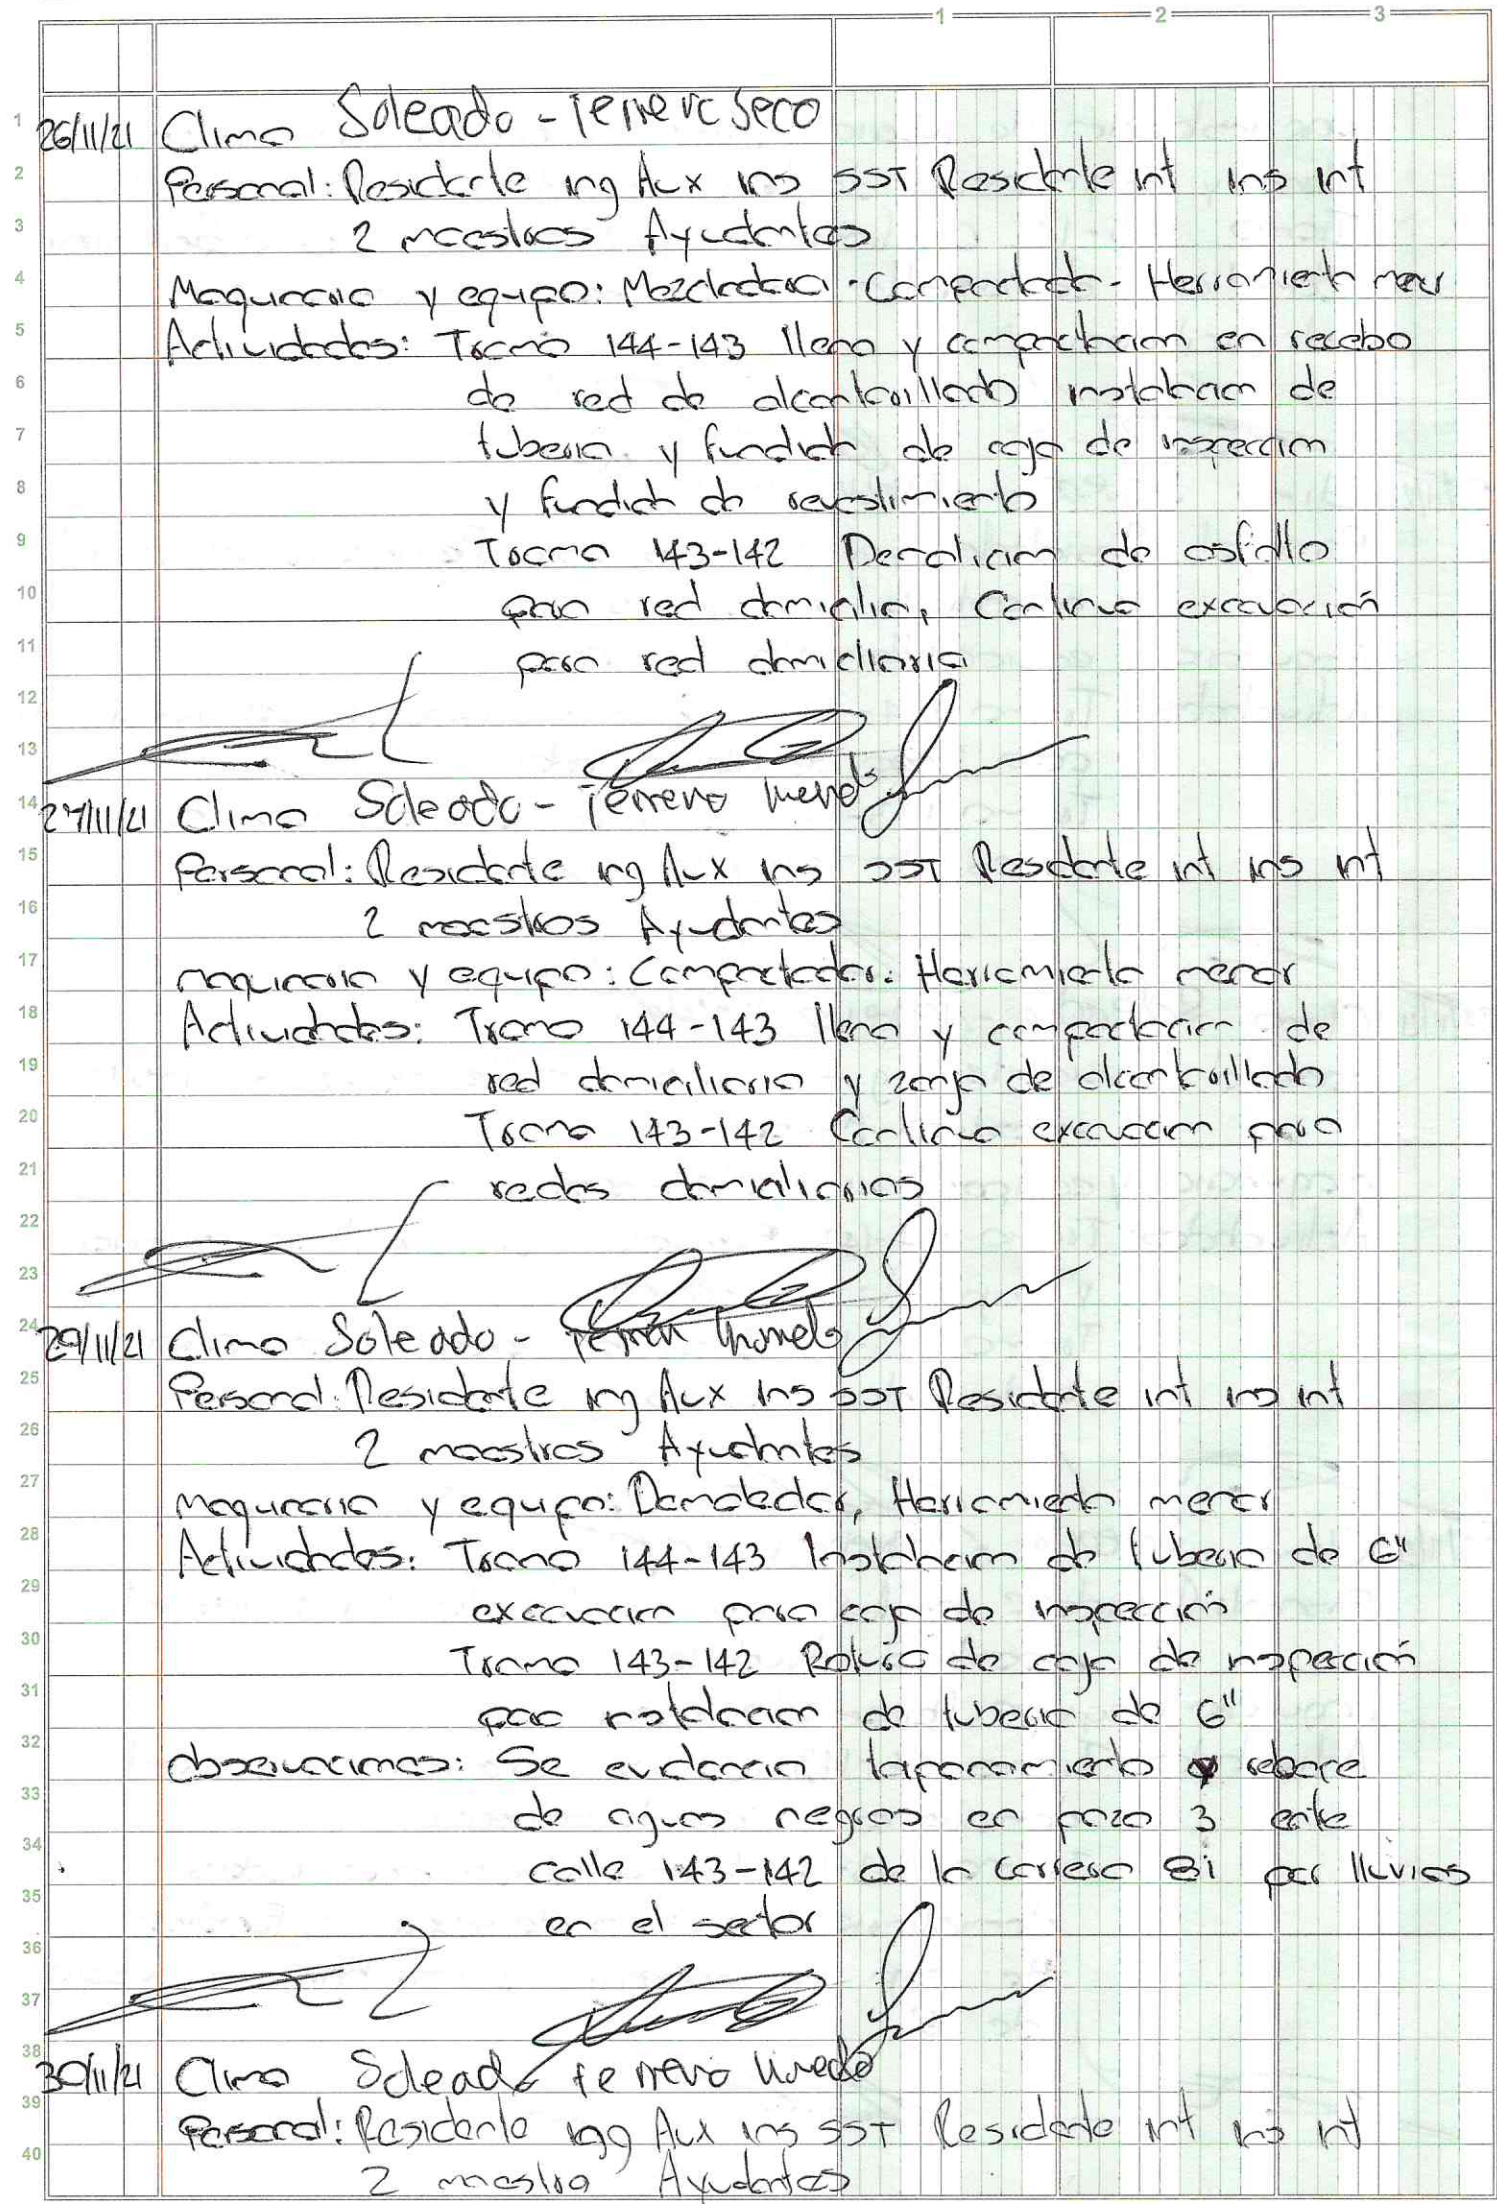 1 2 3
26/11/21 Clima Soleado - Terreno Seco
Personal: Residente ing Aux ins SST Residente int ins int
2 maestros Ayudantes
Maquinaria y equipo: Mezcladora - Compactador - Herramienta menor
Actividades: Tramo 144-143 lleno y compactacion en recebo
de red de alcantarillado instalacion de
tuberia y fundida de caja de inspeccion
y fundida de revestimiento
Tramo 143-142 Demolicion de asfalto
para red domicilia, Continua excavación
para red domiciliaria
27/11/21 Clima Soleado - Terreno humedo
Personal: Residente ing Aux ins SST Residente int ins int
2 maestros Ayudantes
maquinaria y equipo: Compactador. Herramienta menor
Actividades: Tramo 144-143 lleno y compactacion de
red domiciliaria y zanja de alcantarillado
Tramo 143-142 Continua excavacion para
redes domiciliarias
29/11/21 Clima Soleado - Terreno humedo
Personal: Residente ing Aux ins SST Residente int ins int
2 maestros Ayudantes
maquinaria y equipo: Demoledor, Herramienta menor
Actividades: Tramo 144-143 Instalacion de tuberia de 6"
excavacion para caja de inspección
Tramo 143-142 de caja de inspección
para instalacion de tuberia de 6"
Observaciones: Se evidencia taponamiento y rebose
de aguas negras en pozo 3 entre
calle 143-142 de la carrera por lluvias
en el sector
30/11/21 Clima Soleado terreno humedo
Personal: Residente ing Aux ins SST Residente int ins int
2 maestro Ayudantes